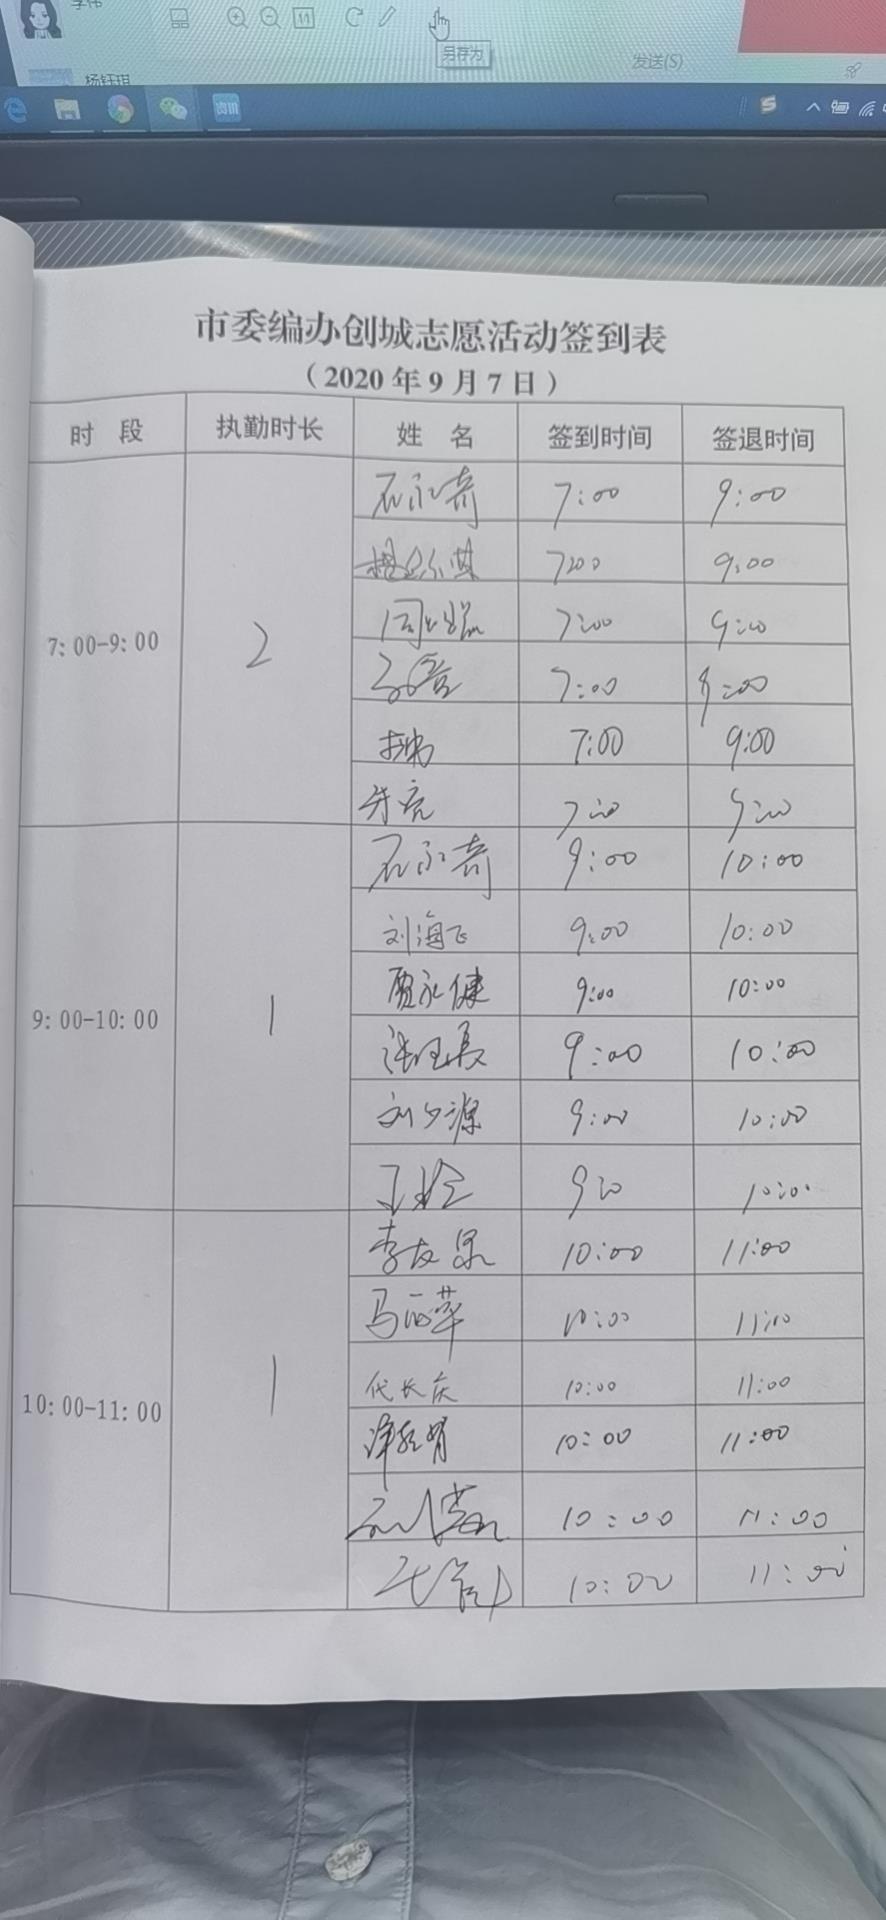 另存为
发送(S)
杨钰琪
市委编办创城志愿活动签到表
（2020年9月7日）
时 段 执勤时长 姓 名 签到时间 签退时间
7:00-9:00 2 石永奇 7:00 9:00
7:00 9:00
7:00 9:00
7:00 9:00
7:00 9:00
7:00 9:00
9:00-10:00 1 石永奇 9:00 10:00
刘海飞 9:00 10:00
贾永健 9:00 10:00
9:00 10:00
刘少源 9:00 10:00
9:00 10:00
10:00-11:00 1 李友泉 10:00 11:00
马丽萍 10:00 11:00
代长庆 10:00 11:00
10:00 11:00
10:00 11:00
10:00 11:00